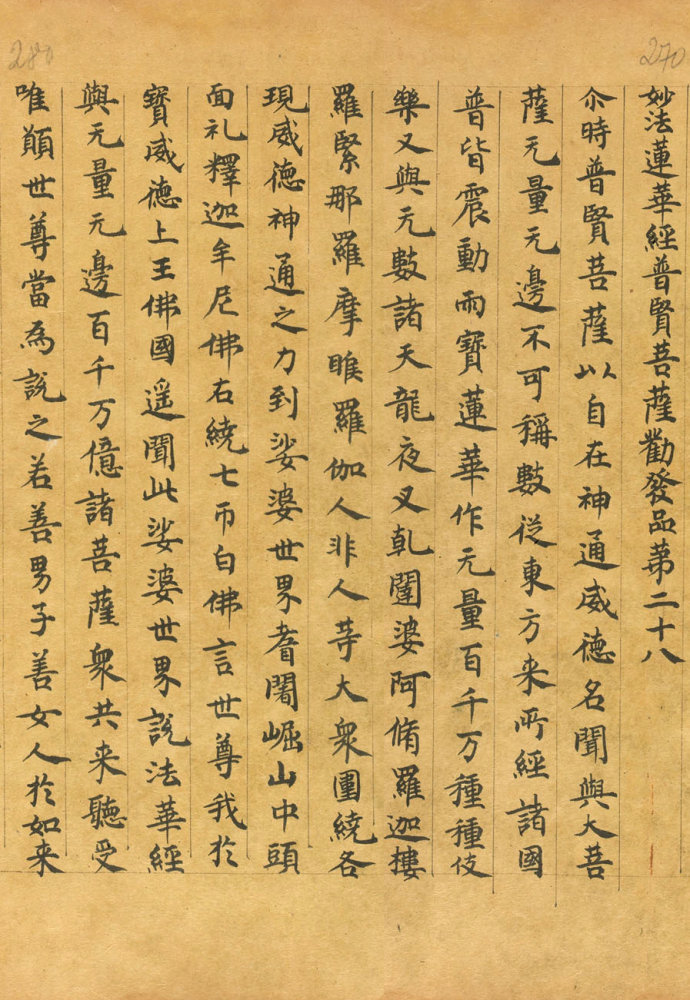 280
270
妙法蓮華經普賢菩薩勸發品第二十八
尒時普賢菩薩以自在神通威德名聞與大菩
薩无量无邊不可稱數從東方来所經諸國
普皆震動雨寶蓮華作无量百千万種種伎
樂又與无數諸天龍夜叉乹闥婆阿脩羅迦樓
羅緊那羅摩睺羅伽人非人等大衆圍繞各
現威德神通之力到娑婆世界耆闍崛山中頭
面礼釋迦牟尼佛右繞七帀白佛言世尊我於
寶威德上王佛國遥聞此娑婆世界說法華經
與无量无邊百千万億諸菩薩衆共来聽受
唯願世尊當為說之若善男子善女人於如来